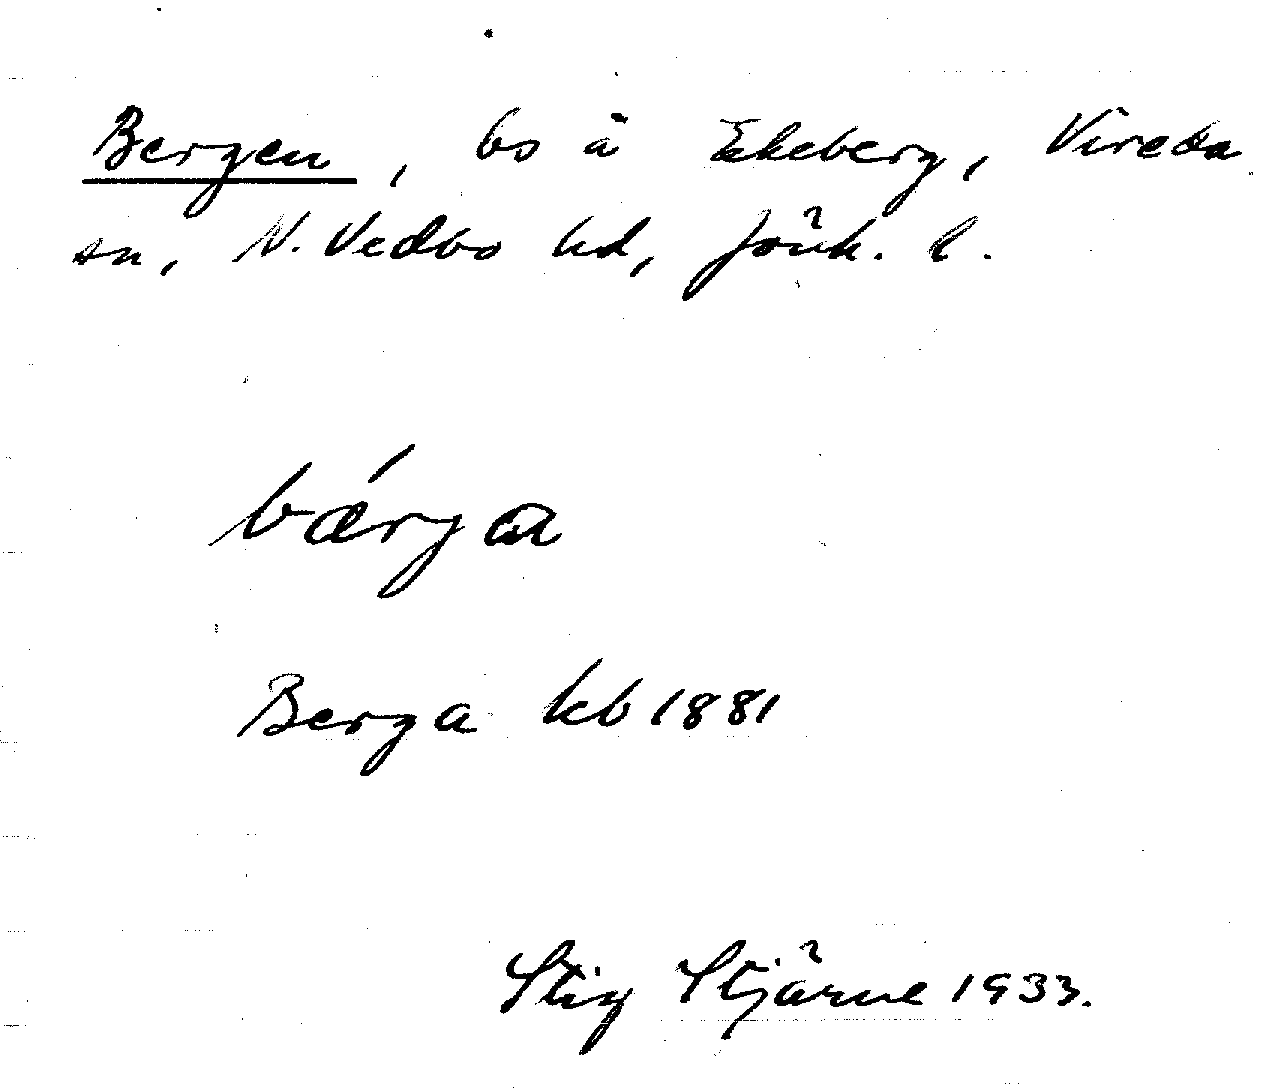 Bergen, bs å Ekeberg, Vireda
sn, N. Vedbo hd, Jönk. l.
bǽrja
Berga kb 1881
Stig Stjärne 1933.